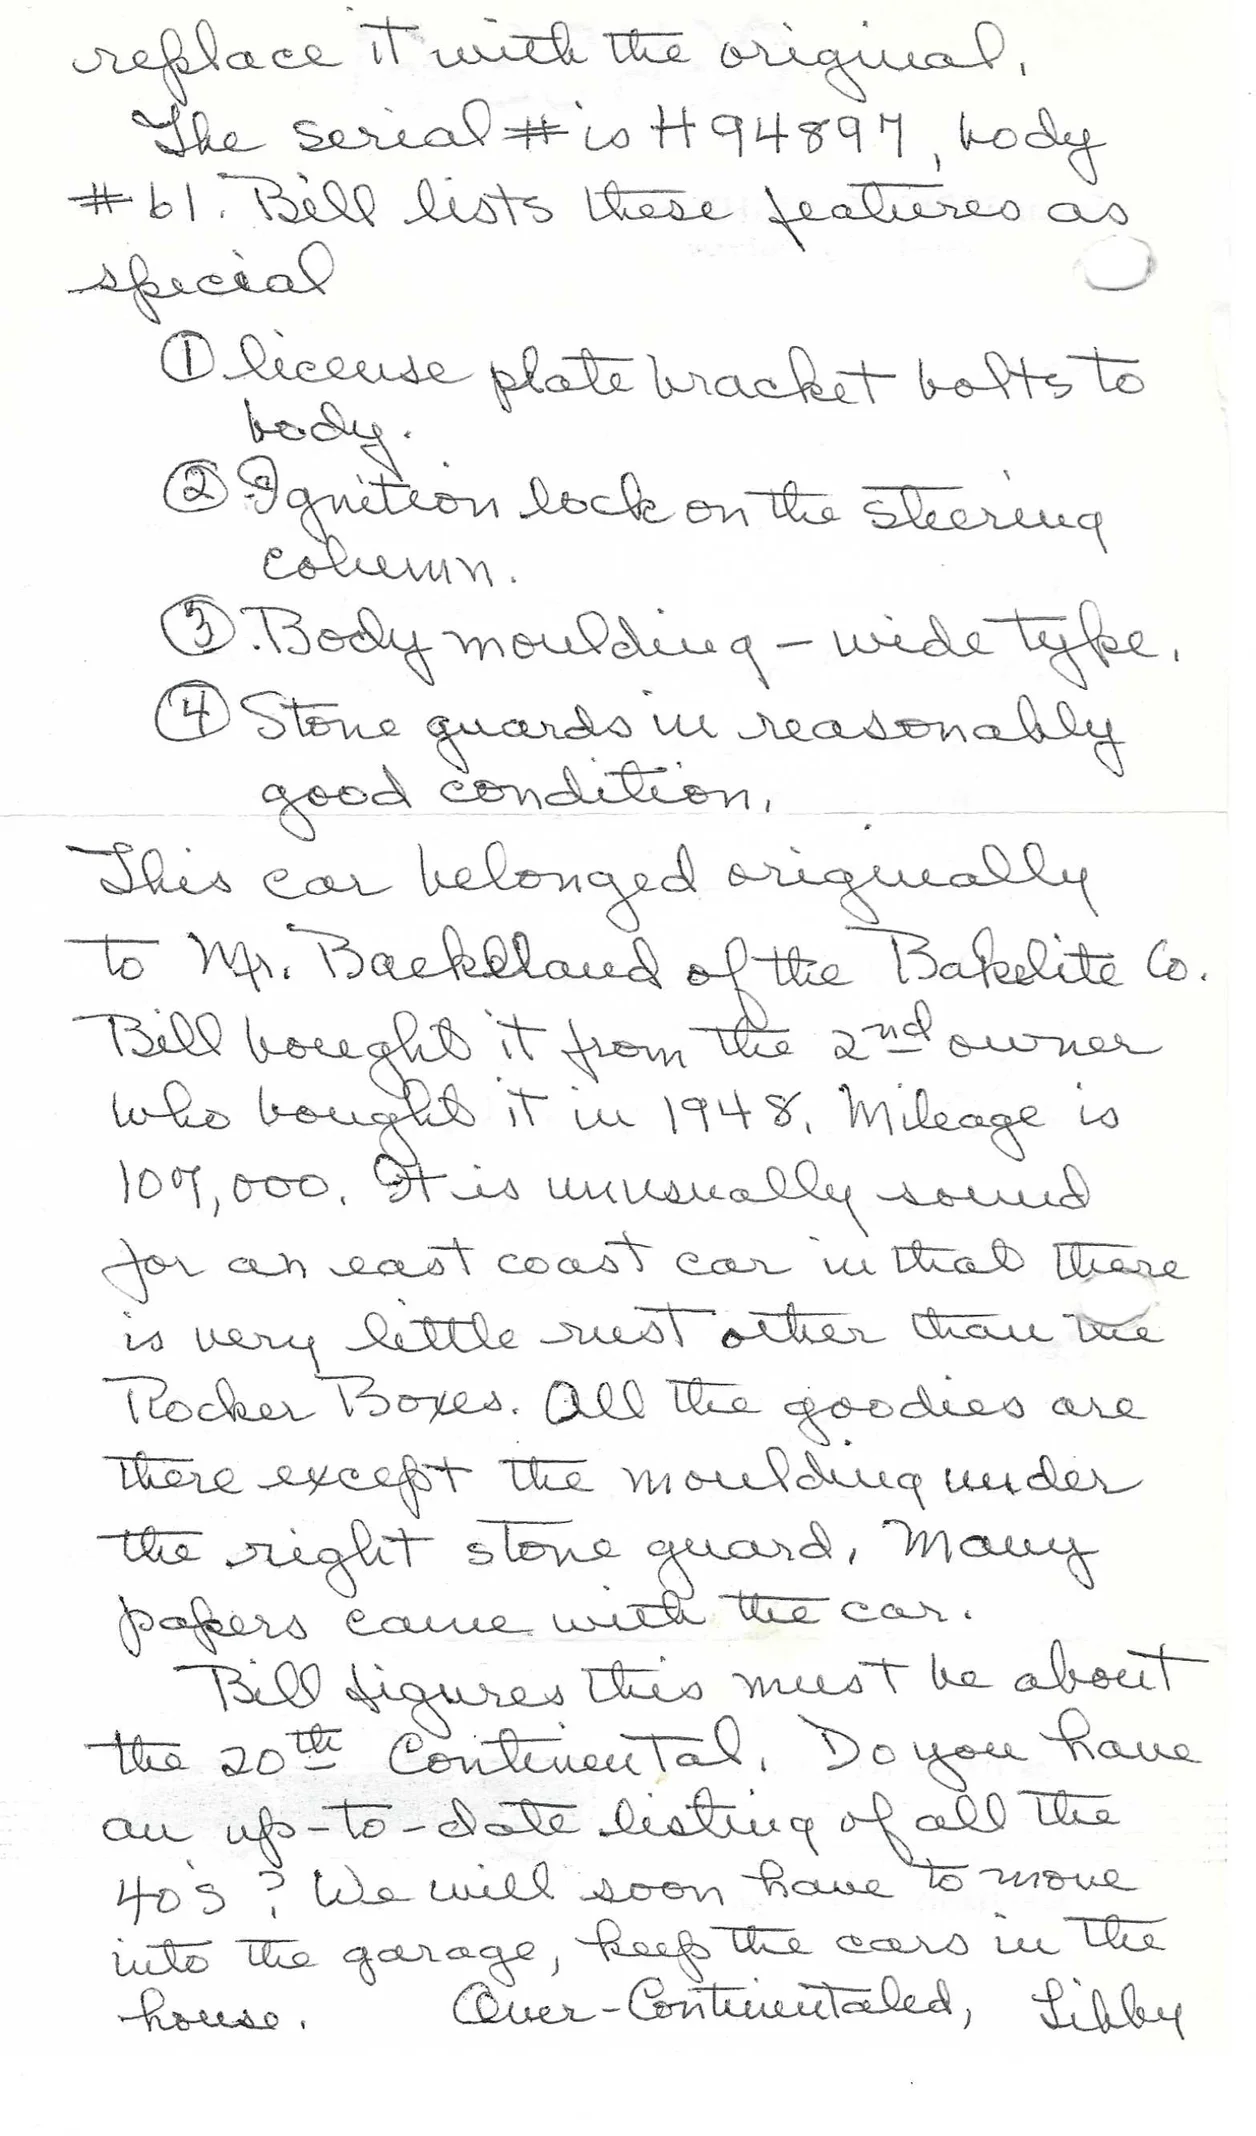 replace it with the original.
The serial # is H94897, body
#61. Bill lists these features as
special
① license plate bracket bolts to
body.
② Ignition lock on the steering
column.
③ Body moulding - wide type.
④ Stone guards in reasonably
good condition.
This car belonged originally
to Mr. Baekeland of the Bakelite Co.
Bill bought it from the 2nd owner
who bought it in 1948. Mileage is
107,000. It is unusually sound
for an east coast car in that there
is very little rust other than the
Rocker Boxes. All the goodies are
there except the moulding under
the right stone guard. Many
papers came with the car.
Bill figures this must be about
the 20th Continental. Do you have
an up-to-date listing of all the
40's? We will soon have to move
into the garage, keep the cars in the
house. Over-Continentaled, Libby